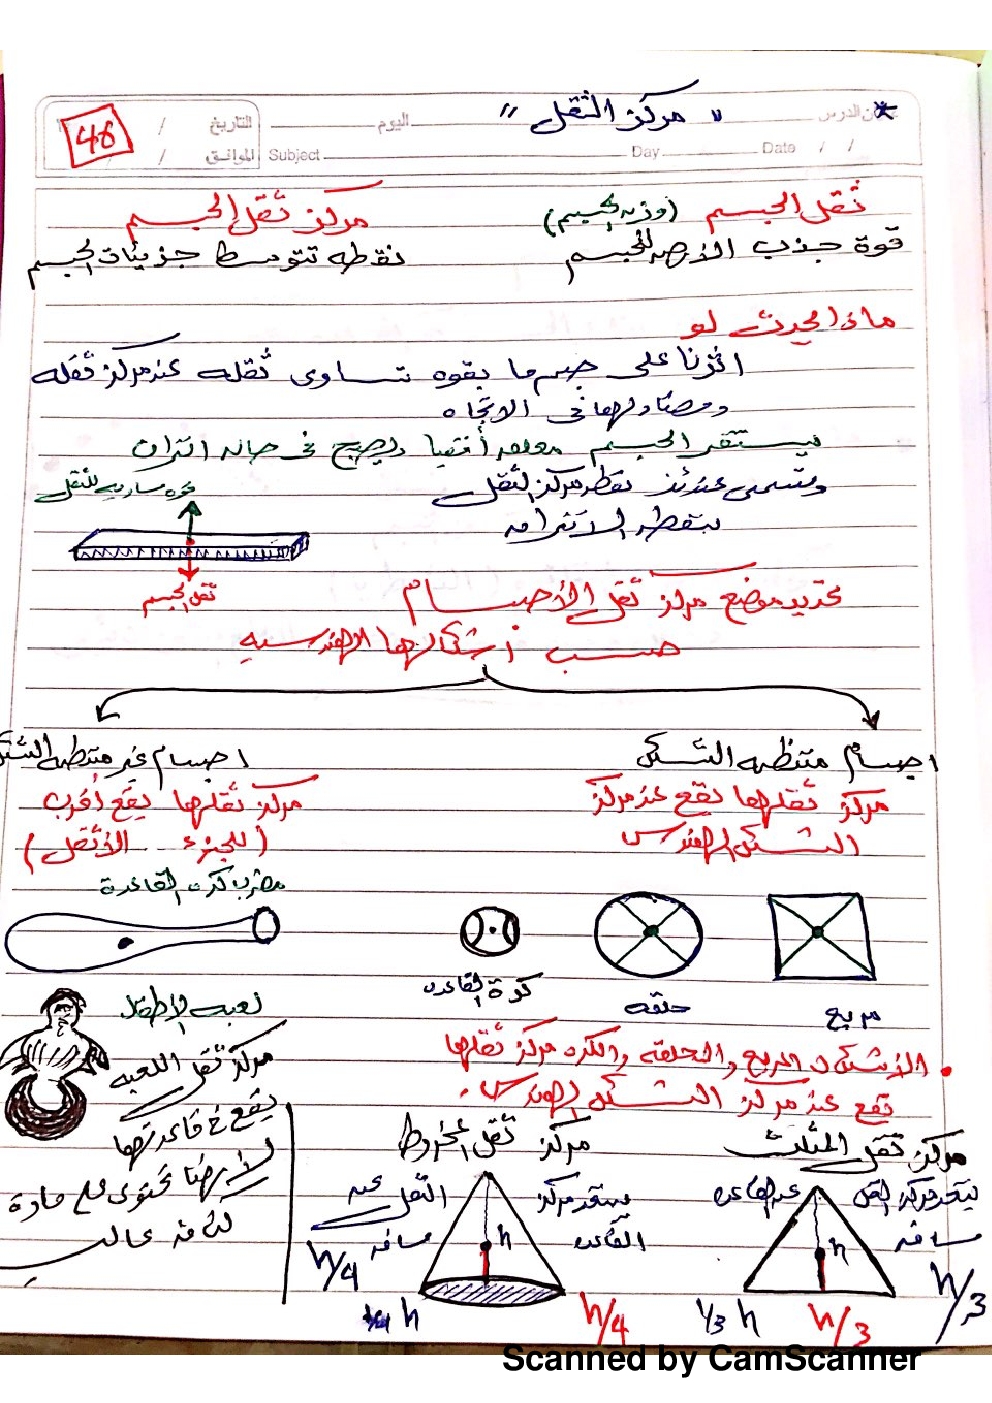 عنوان الدرس
" مركز الثقل "
اليوم
التاريخ / /
48
Date / /
Day
Subject
الموافق / /
ثقل الجسم (وزن الجسم)
قوة جذب الارض للجسم
مركز ثقل الجسم
نقطه تتوسط جزيئات الجسم
ماذا يحدث لو
اثرنا على جسم ما بقوه تساوى ثقله عند مركز ثقله
ومضاد لها فى الاتجاه
يستقر الجسم معلق أفقيا ويصبح فى حاله اتزان
وتسمى عندئذ نقطه مركز الثقل
بنقطه الاتزان
قوه مساويه للثقل
ثقل الجسم
تحديد موضع مركز ثقل الأجسام
حسب أشكالها الهندسيه
اجسام منتظمه الشكل
مركز ثقلها يقع عند مركز
الشكل الهندسى
اجسام غير منتظمه الشكل
مركز ثقلها يقع أقرب
(للجزء الأثقل)
مضرب كرة القاعدة
مربع
حلقه
كرة القاعده
لعبه الاطفال
مركز ثقل اللعبه
يقع فى قاعدتها
لأنها تحتوى على مادة
كثافه عاليه
• الأشكال المربع والحلقه والكره مركز ثقلها
تقع عند مركز الشكل الهندسى.
مركز ثقل المثلث
يبتعد مركز الثقل
عن القاعده
مسافه
h/3
h
1/3 h
h/3
مركز ثقل المخروط
يبتعد مركز
الثقل عن
القاعده
مسافه
h/4
h
1/4 h
h/4
Scanned by CamScanner